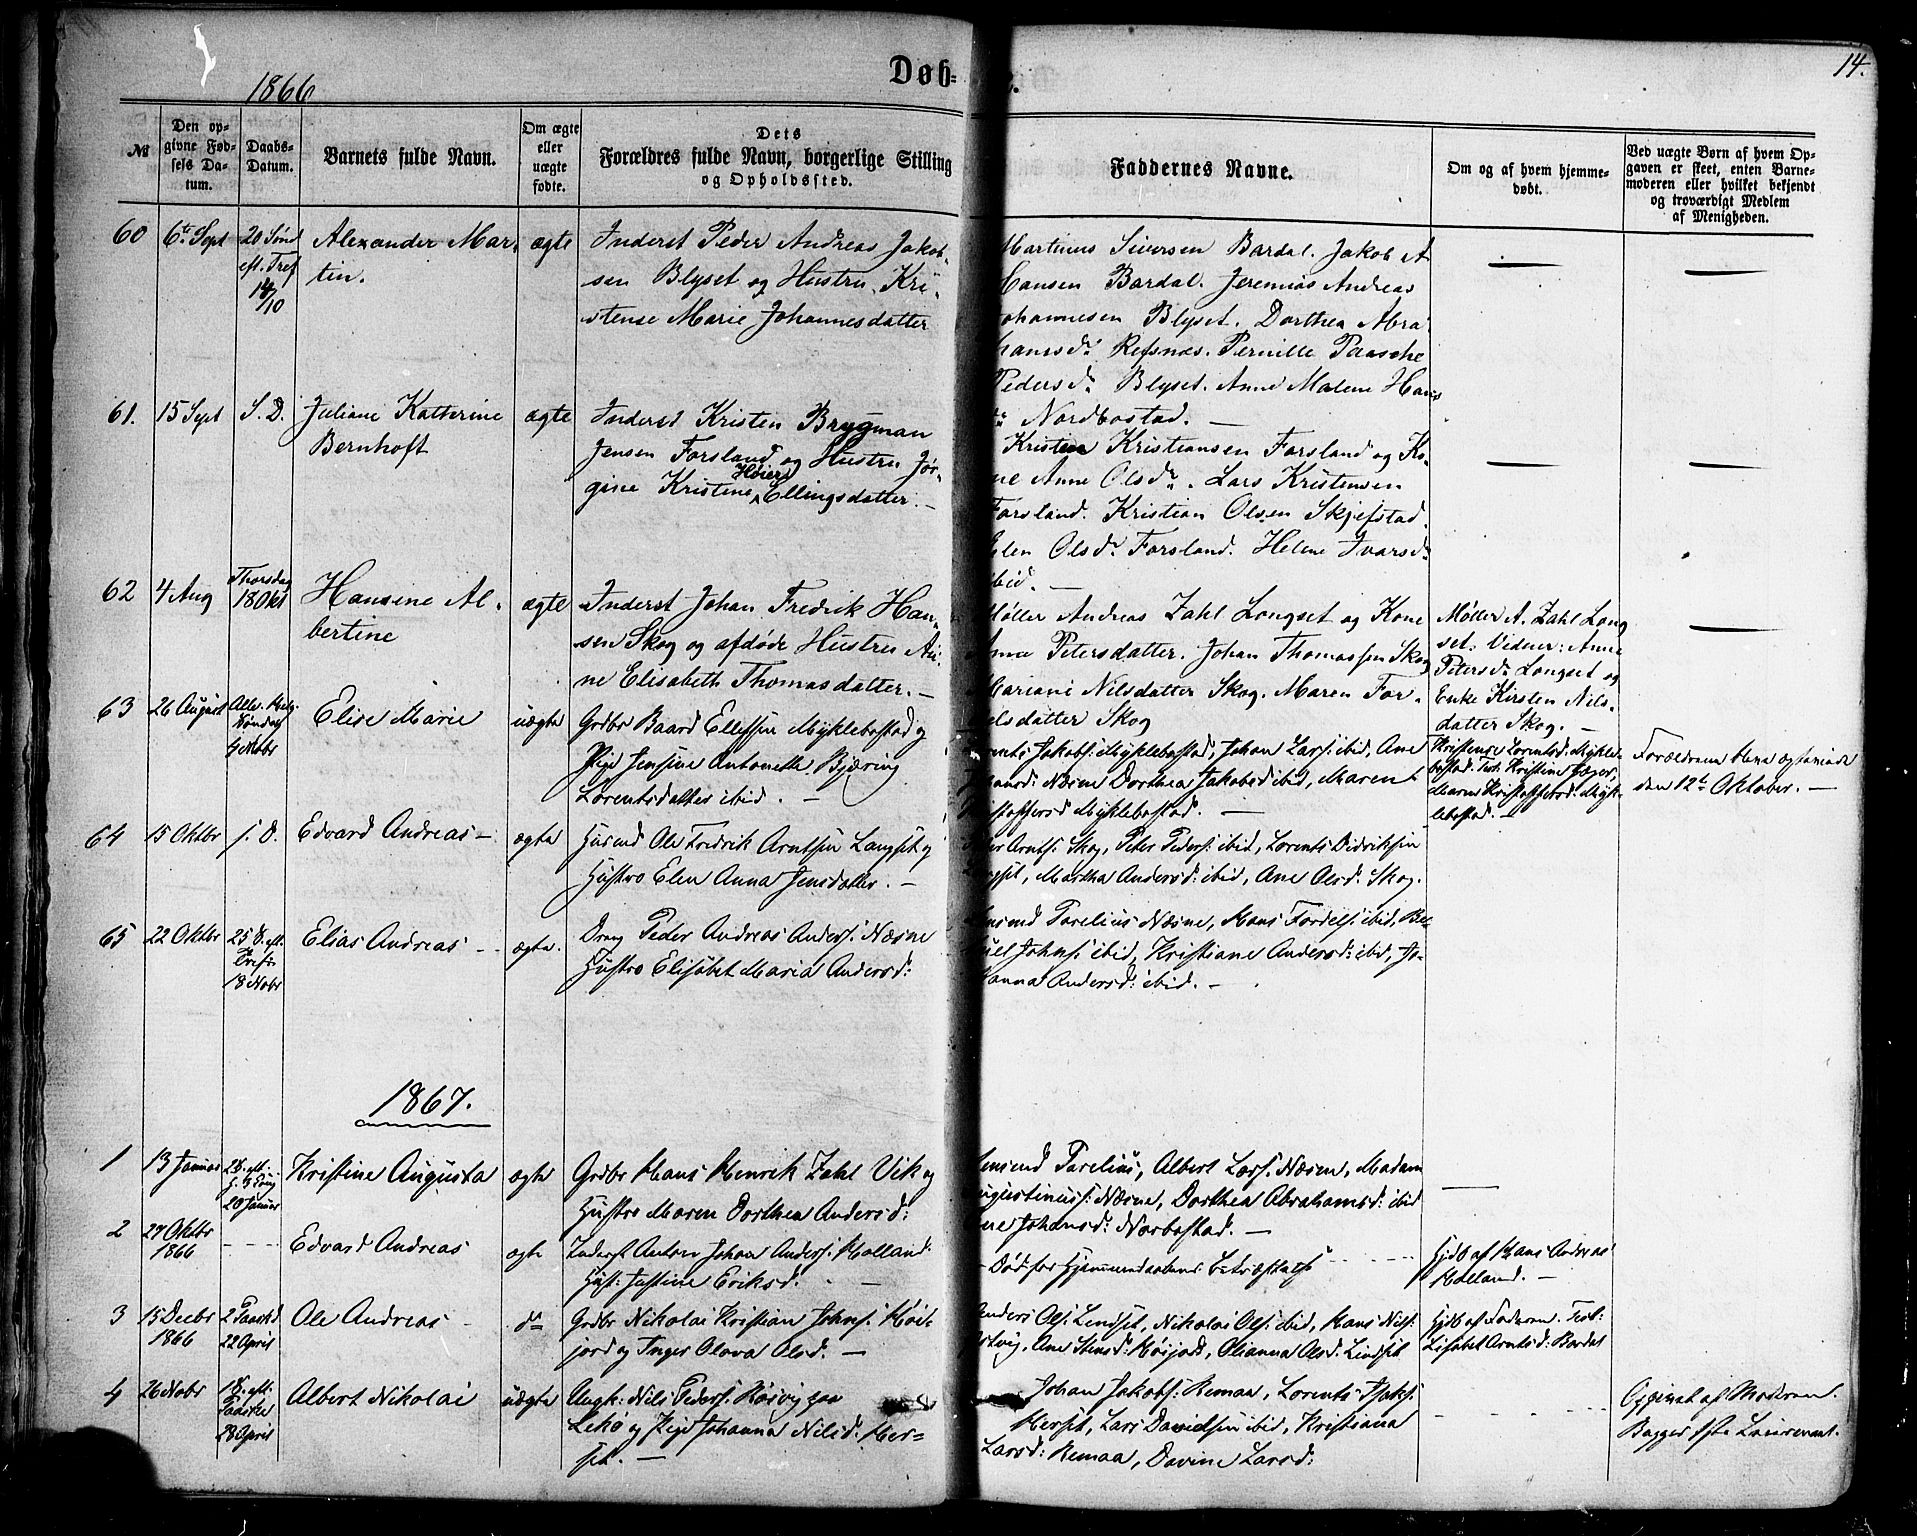 14.
1866
Døb=
№
Den op-
givne Fød-
sels Da-
tum.
Daabs-
Datum.
Barnets fulde Navn.
Om ægte
eller
uægte
fødte.
Dets
Forældres fulde Navn, borgerlige Stilling
og Opholdssted.
Faddernes Navne.
Om og af hvem hjemme-
døbt.
Ved uægte Børn af hvem Op-
gaven er skeet, enten Barne-
moderen eller hvilket bekjendt
og troværdigt Medlem
af Menigheden.
60
6te Sept
20 Sønd
eft. Tref
14/10
Alexander Mar-
tin.
ægte
Inderst Peder Andreas Jakob-
sen Blyset og Hustru Kri-
stense Marie Johannesdatter
Martinus Siversen Bardal. Jakob A
Hansen Bardal. Jeremias Andreas
Johannesen Blyset. Dorthea Abra-
hamsdr Refsnes. Pernille Paasche
Pedersdr Blyset. Anne Malene Hans
dr Nordbostad. —
61.
15 Sept
S. D.
Juliane Katherine
Bernhoft
ægte
Inderst Kristen Brygman
Jensen Forsland og Hustru Jør-
gine Kristine Høier Ellingsdatter. —
Kristen Kristiansen Forsland og Ko-
ne Anne Olsdr. Lars Kristensen
Forsland. Kristian Olsen Skjefstad.
Elen Olsdr Forsland. Helene Ivarsdr
ibid. —
62
4 Aug
Thorsdag
18 Okt
Hansine Al-
bertine
ægte
Inderst Johan Fredrik Han-
sen Skog og afdøde Hustru An-
ne Elisabeth Thomasdatter. —
Møller Andreas Zahl Longset og Kone
Anna Petersdatter. Johan Thomassen Skog
Mariane Nilsdatter Skog. Maren For-
delsdatter Skog
Møller A. Zahl Long
set. Vidner: Anne
Petersdr Longset og
Enke Kirsten Nils-
datter Skog. —
63
26 August
Alle. Helg.
Søndag
4 Nobr
Elise Marie
uægte
Grdbr Baard Ellefsen Myklebostad og
Pige Jensine Antonette Bjæring
Lorentsdatter ibid. —
Lorents Jakobs: Myklebostad, Johan Lars: ibid, Ane
Næsne Dorthea Jakobsd ibid, Maren
Kristoffersd Myklebostad. —
Kristense Lorentsd: Mykle-
bostad. Test. Kristine
Maren Kristoffersd: Myk-
lebostad. —
Forældrene
den 12te Oktober. —
64
15 Oktbr
s. D.
Edvard Andreas —
ægte
Husmd Ole Fredrik Arntsen Langset og
Hustro Elen Anna Jensdatter. —
Arnts: Skog, Peter Peders: ibid, Lorents Didriksen
Langset, Martha Andersd: ibid, Ane Olsd: Skog.
65
22 Oktbr
25 S. eft.
Tref:
18 Nobr
Elias Andreas —
ægte.
Dreng Peder Andreas Anders: Næsne
Hustro Elisabet Maria Andersd:
Lensmd Parelius Næsne, Hans Fordels: ibid, Be-
Johns: ibid, Kristiane Andersd: ibid, Jo-
hanna Andersd: ibid. —
1867.
1
13 Januar
2 S. eft.
20 Januar
Kristine Augusta
ægte
Grdbr Hans Henrik Zahl Vik og
Hustro Maren Dorthea Andersd:
Lensmd Parelius, Albert Lars: Næsne, Madam
Augustinus: Næsne, Dorthea Abrahamsd: ibid
Ane Johansd: Norbostad. —
2
27 Oktbr
1866
Edvard Andreas
ægte
Inderst Anton Johan Anders: Holland:
Hust: Justine Eriksd. —
Død før Hjemmedaabens
Hjdb af Hans Andreas
Holland. —
3
15 Decbr
1866
2 Paaskd
22 April
Ole Andreas —
do
Grdbr Nikolai Kristian Johns: Høie-
jord og Inger Olava Olsd. —
Anders Ols: Lindset, Nikolai Ols: ibid, Hans Nils:
Ane Stensd: Høijord, Olianna Olsd: Lindset
Hjdb af Faderen. Test:
Lisabet Arntsd: Bardal
4
26 Nobr
1 S. eft.
Paaske
28 April
Albert Nikolai
uægte
Ungk: Nils Peders: Røsvig paa
Lekø og Pige Johanna Nilsd: Her-
set. —
Johan Jakobs: Remaa, Lorents Isaks:
Herset, Lars Davidsen ibid, Kristiana
Larsd: Remaa, Davine Larsd:
Opgivet af Moderen.